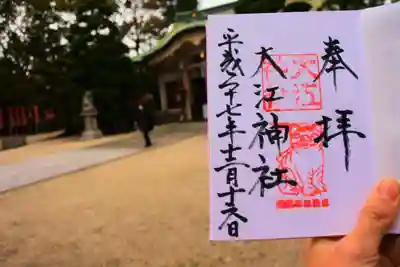 奉拝
大江神社
平成二十七年十二月十六日